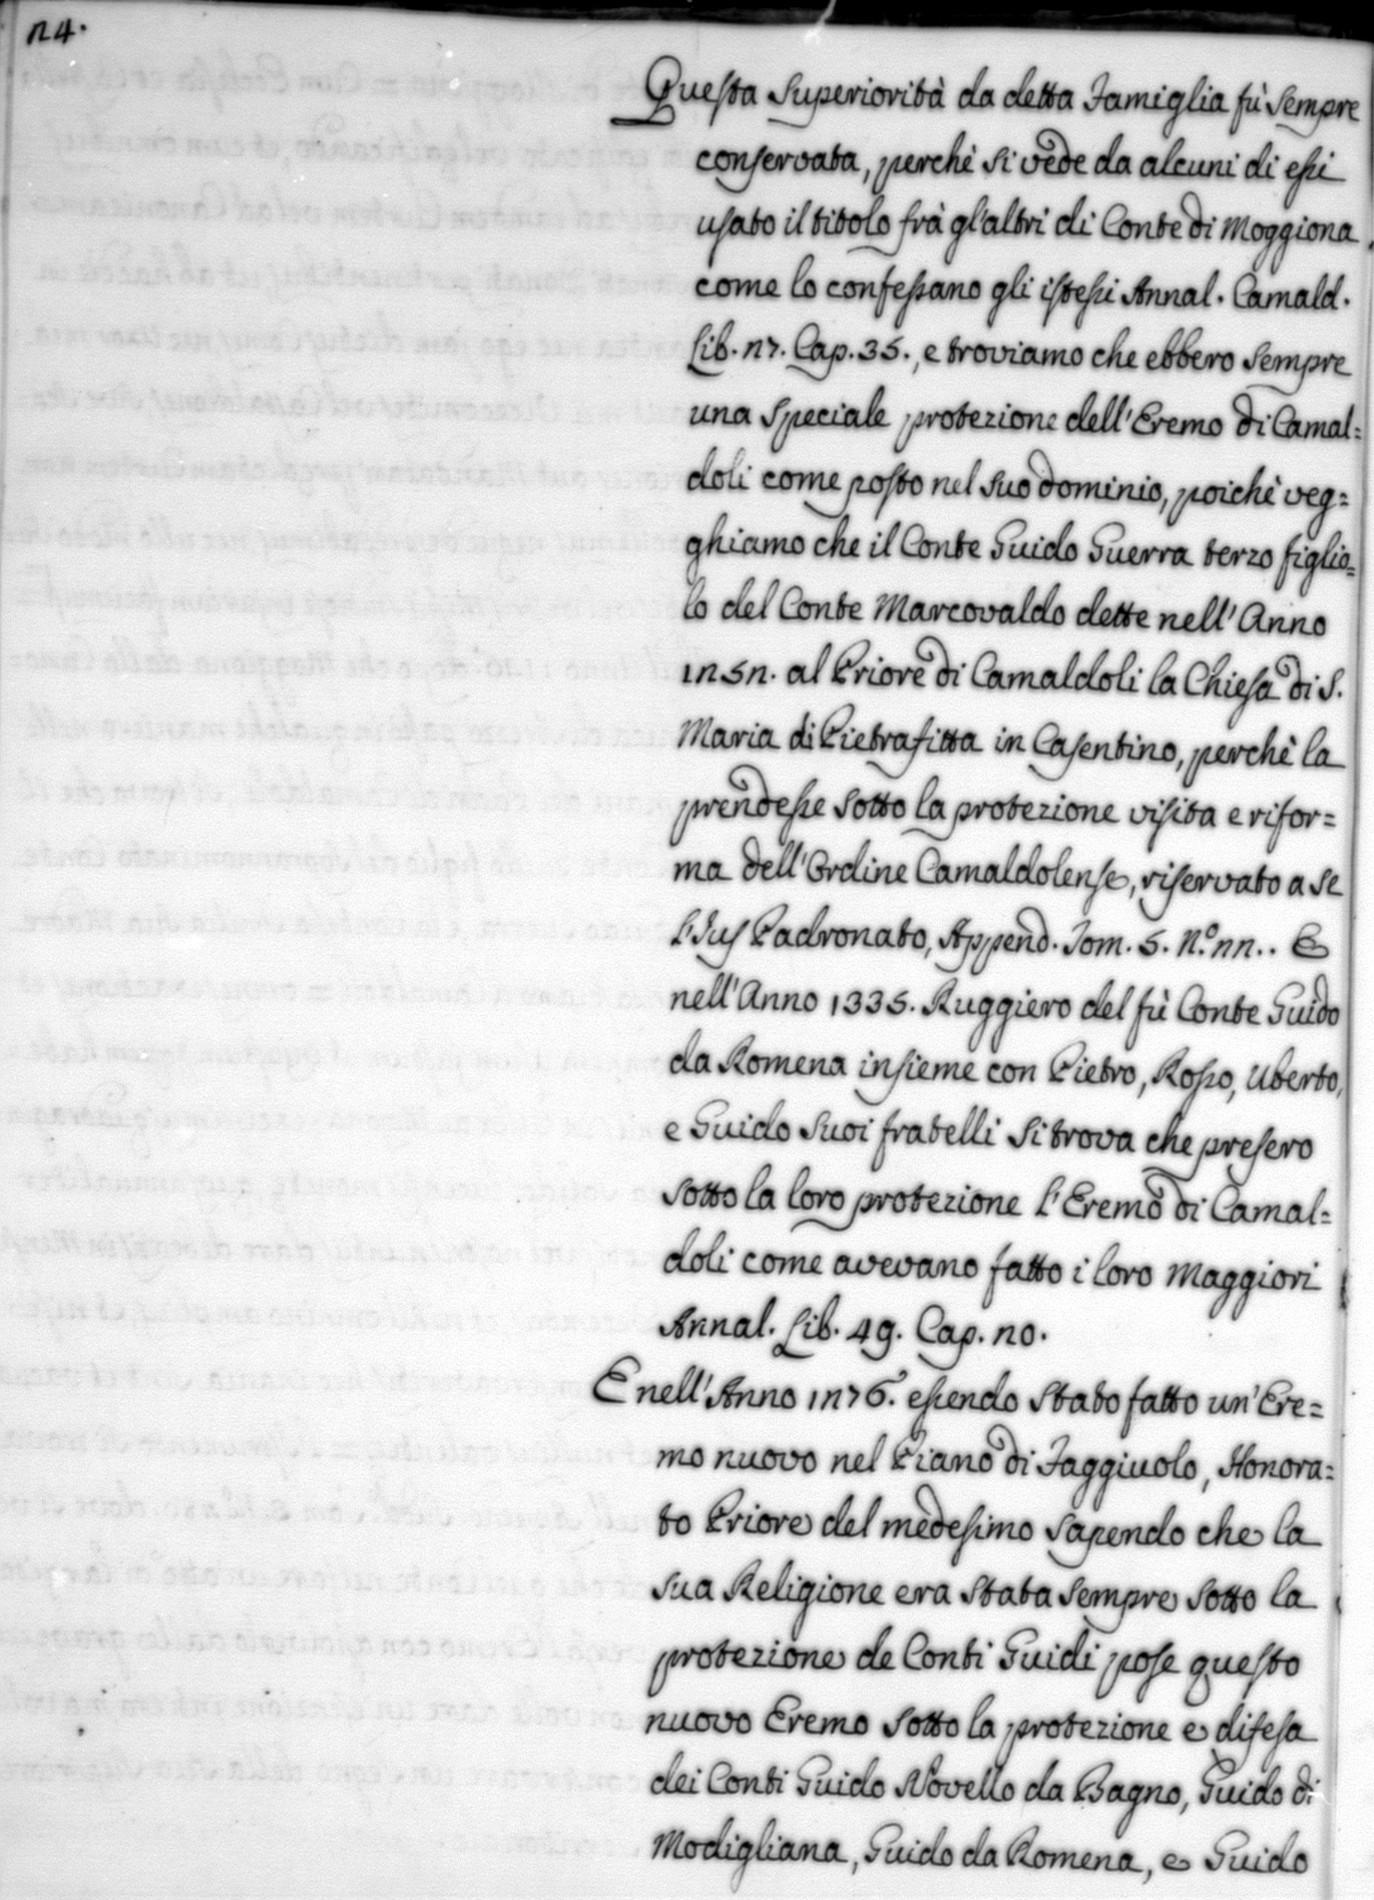 24.
Questa Superiorità da detta Famiglia fù sempre
conservata, perchè si vede da alcuni di essi
usato il titolo frà gl'altri di Conte di Moggiona,
come lo confessano gli istessi Annal. Camald.
Lib. 27. Cap. 35., e troviamo che ebbero sempre
una speciale protezione dell'Eremo di Camal=
doli come posto nel suo dominio, poichè veg=
ghiamo che il Conte Guido Guerra terzo figlio=
lo del Conte Marcovaldo dette nell'Anno
1252. al Priore di Camaldoli la Chiesa di S.
Maria di Pietrafitta in Casentino, perchè la
prendesse sotto la protezione visita e rifor=
ma dell'Ordine Camaldolense, riservato a se
l'Jus Padronato, Append. Tom. 5. N.º 22.. E
nell'Anno 1335. Ruggiero del fù Conte Guido
da Romena insieme con Pietro, Rosso, Uberto,
e Guido suoi fratelli si trova che presero
sotto la loro protezione l'Eremo di Camal=
doli come avevano fatto i loro Maggiori
Annal. Lib. 49. Cap. 20.
E nell'Anno 1276. essendo stato fatto un'Ere=
mo nuovo nel Piano di Faggiuolo, Honora=
to Priore del medesimo sapendo che la
sua Religione era stata sempre sotto la
protezione de Conti Guidi pose questo
nuovo Eremo sotto la protezione e difesa
dei Conti Guido Novello da Bagno, Guido di
Modigliana, Guido da Romena, e Guido